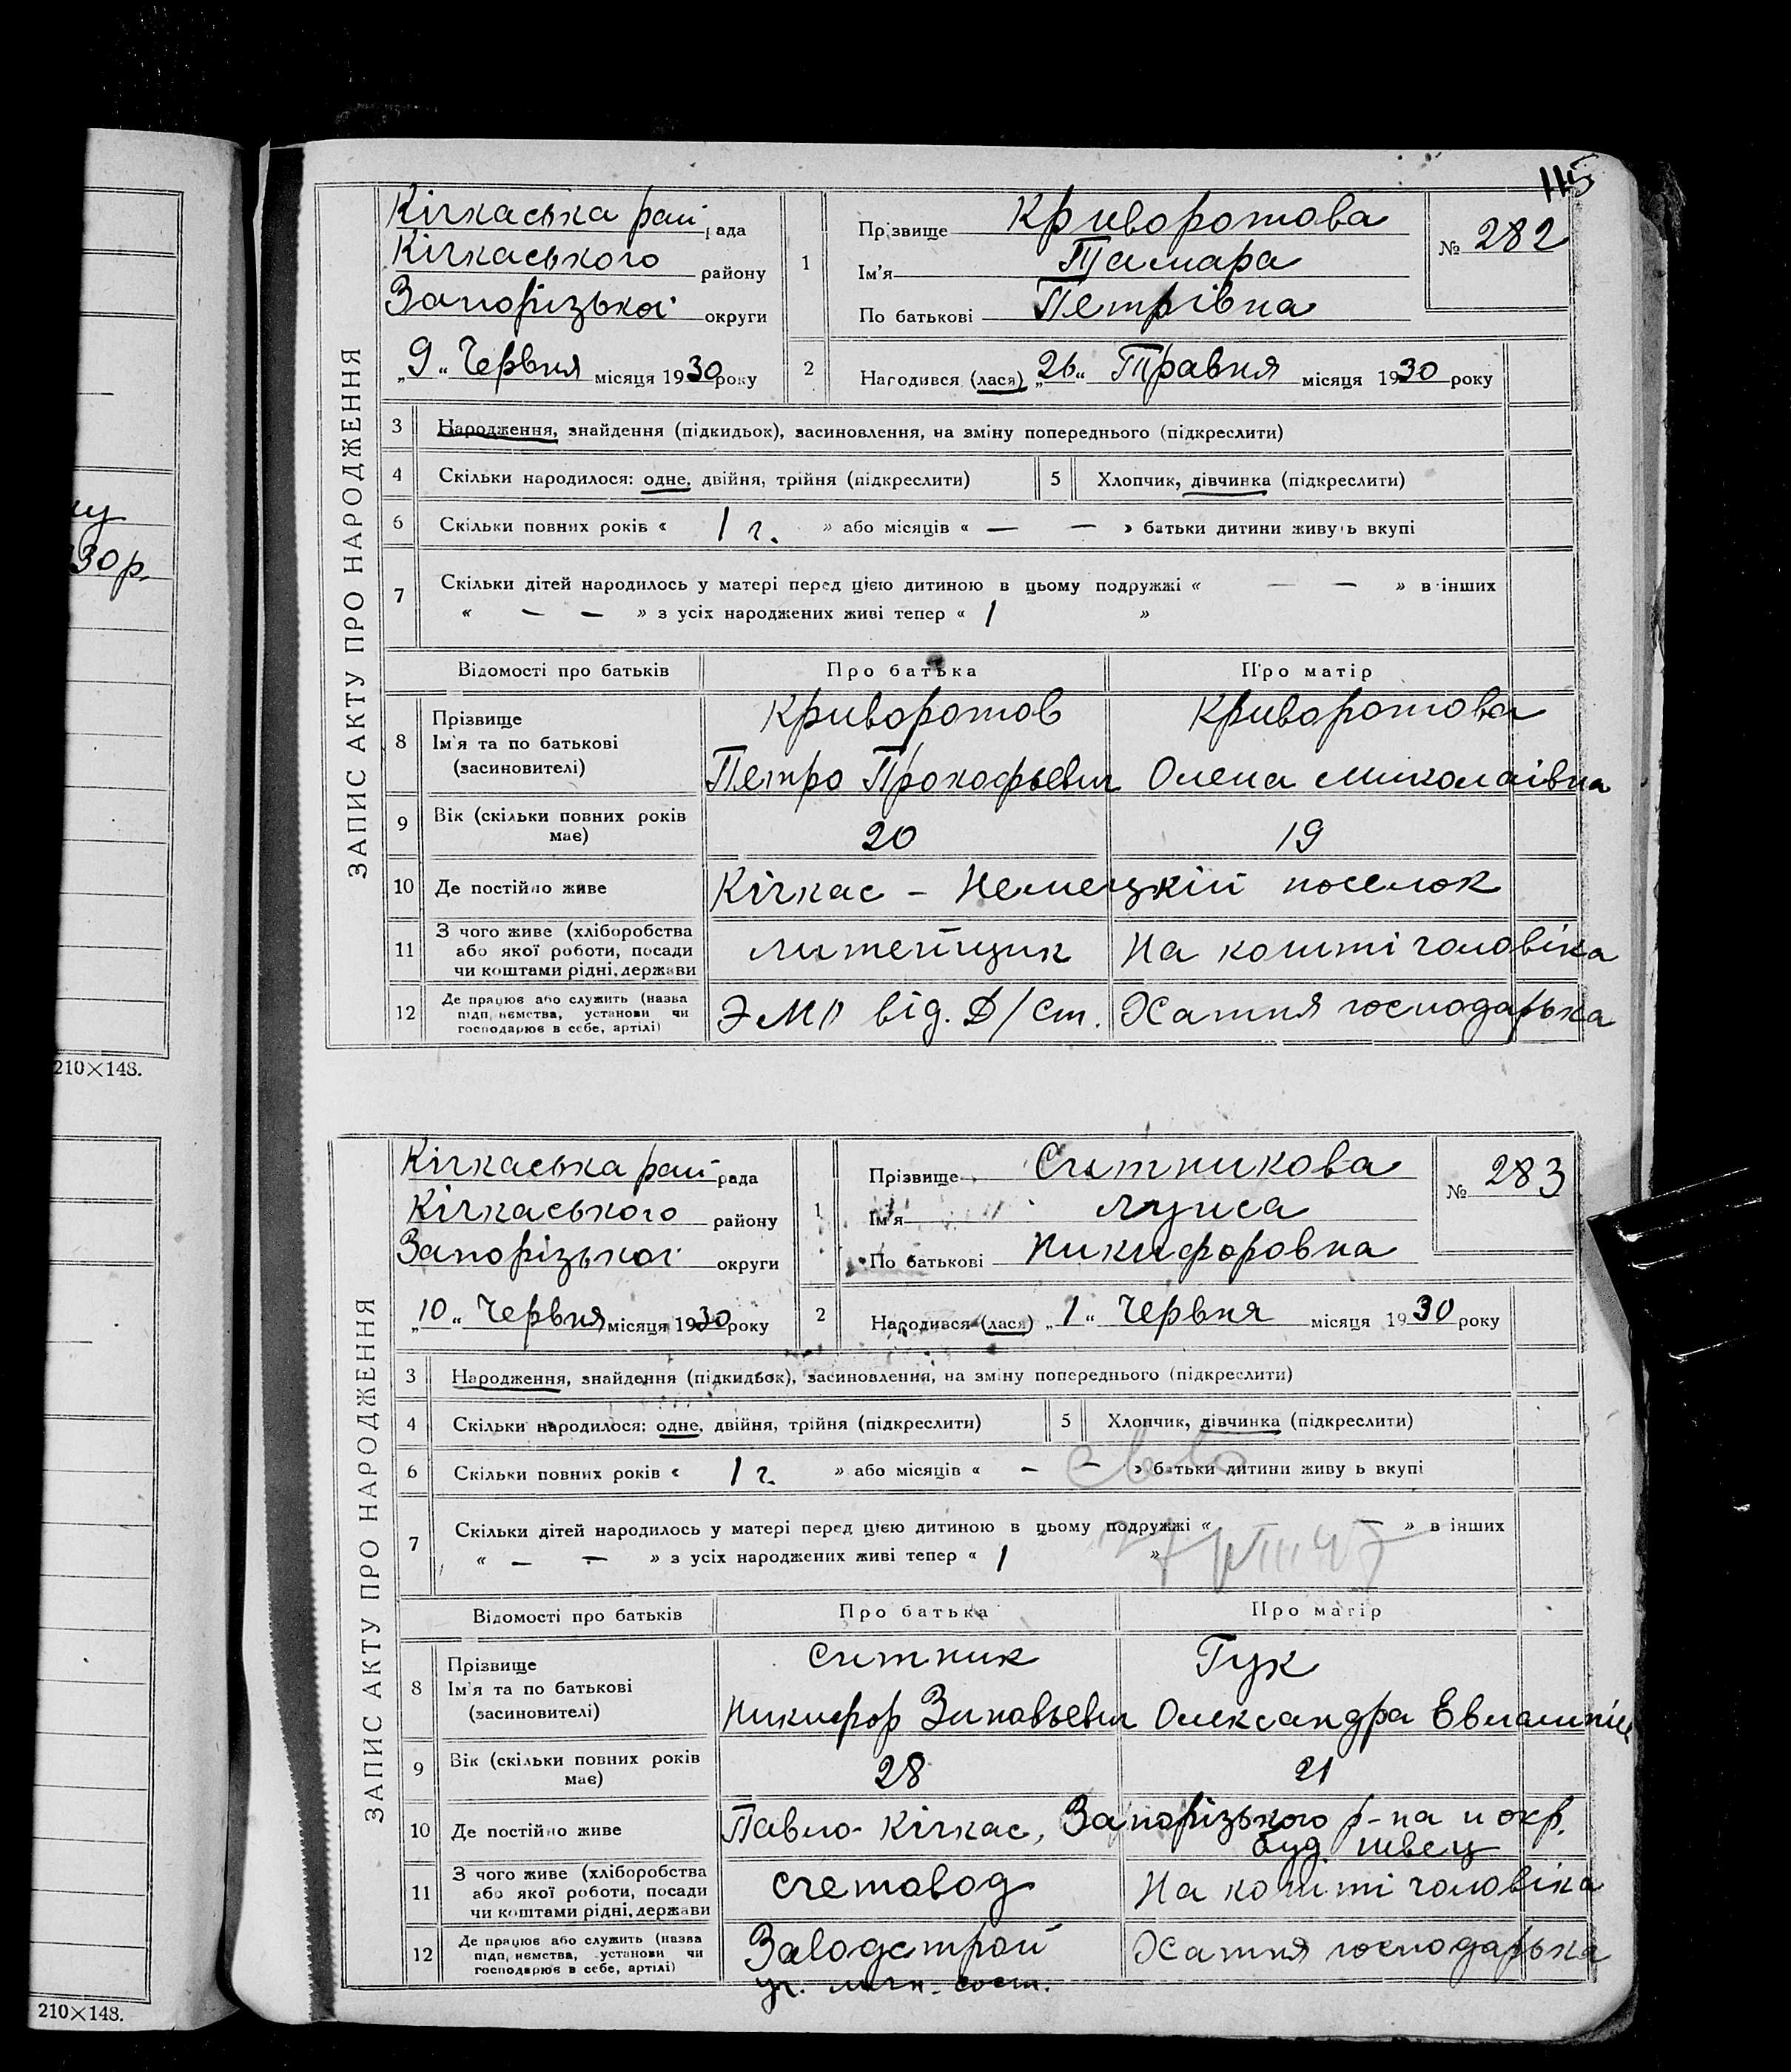 115
ЗАПИС АКТУ ПРО НАРОДЖЕННЯ
Кічкаська рай рада
Кічкаського району
Запорізької округи
„9“ Червня місяця 1930 року
1
Прізвище Криворотова
Ім'я Тамара
По батькові Петрівна
№ 282
2 Народився (лася) „26“ Травня місяця 1930 року
3 Народження, знайдення (підкидьок), засиновлення, на зміну попереднього (підкреслити)
4 Скільки народилося: одне, двійня, трійня (підкреслити) 5 Хлопчик, дівчинка (підкреслити)
6 Скільки повних років « 1 г. » або місяців « — — » батьки дитини живуть вкупі
7 Скільки дітей народилось у матері перед цією дитиною в цьому подружжі « — — » в інших
« — — » з усіх народжених живі тепер « 1 »
Відомості про батьків Про батька Про матір
8 Прізвище Криворотов Криворотова
Ім'я та по батькові
(засиновителі) Петро Прокофьевич Олена Миколаівна
9 Вік (скільки повних років має) 20 19
10 Де постійно живе Кічкас – Немецкій поселок
11 З чого живе (хліборобства
або якої роботи, посади
чи коштами рідні, держави литейщик На кошті чоловіка
12 Де працює або служить (назва
підприємства, установи чи
господарює в себе, артілі) від. Д/ст. Хатня господарька
ЗАПИС АКТУ ПРО НАРОДЖЕННЯ
Кічкаська рай рада
Кічкаського району
Запорізької округи
„10“ Червня місяця 1930 року
1
Прізвище Ситникова
Ім'я Луиса
По батькові Никифоровна
№ 283
2 Народився (лася) „1“ Червня місяця 1930 року
3 Народження, знайдення (підкидьок), засиновлення, на зміну попереднього (підкреслити)
4 Скільки народилося: одне, двійня, трійня (підкреслити) 5 Хлопчик, дівчинка (підкреслити)
6 Скільки повних років « 1 г. » або місяців « — — » батьки дитини живуть вкупі
7 Скільки дітей народилось у матері перед цією дитиною в цьому подружжі « — » в інших
« — — » з усіх народжених живі тепер « 1 »
27 VIII 47
Відомості про батьків Про батька Про матір
8 Прізвище Ситник Гук
Ім'я та по батькові
(засиновителі) Никифор Зиновьевич Олександра
9 Вік (скільки повних років має) 28 21
10 Де постійно живе Павло-Кічкас, Запорізького р-на и окр.
буд. швец
11 З чого живе (хліборобства
або якої роботи, посади
чи коштами рідні, держави счетовод На кошті чоловіка
12 Де працює або служить (назва
підприємства, установи чи
господарює в себе, артілі) Заводстрой Хатня господарька
ну
30р.
210×148.
210×148.